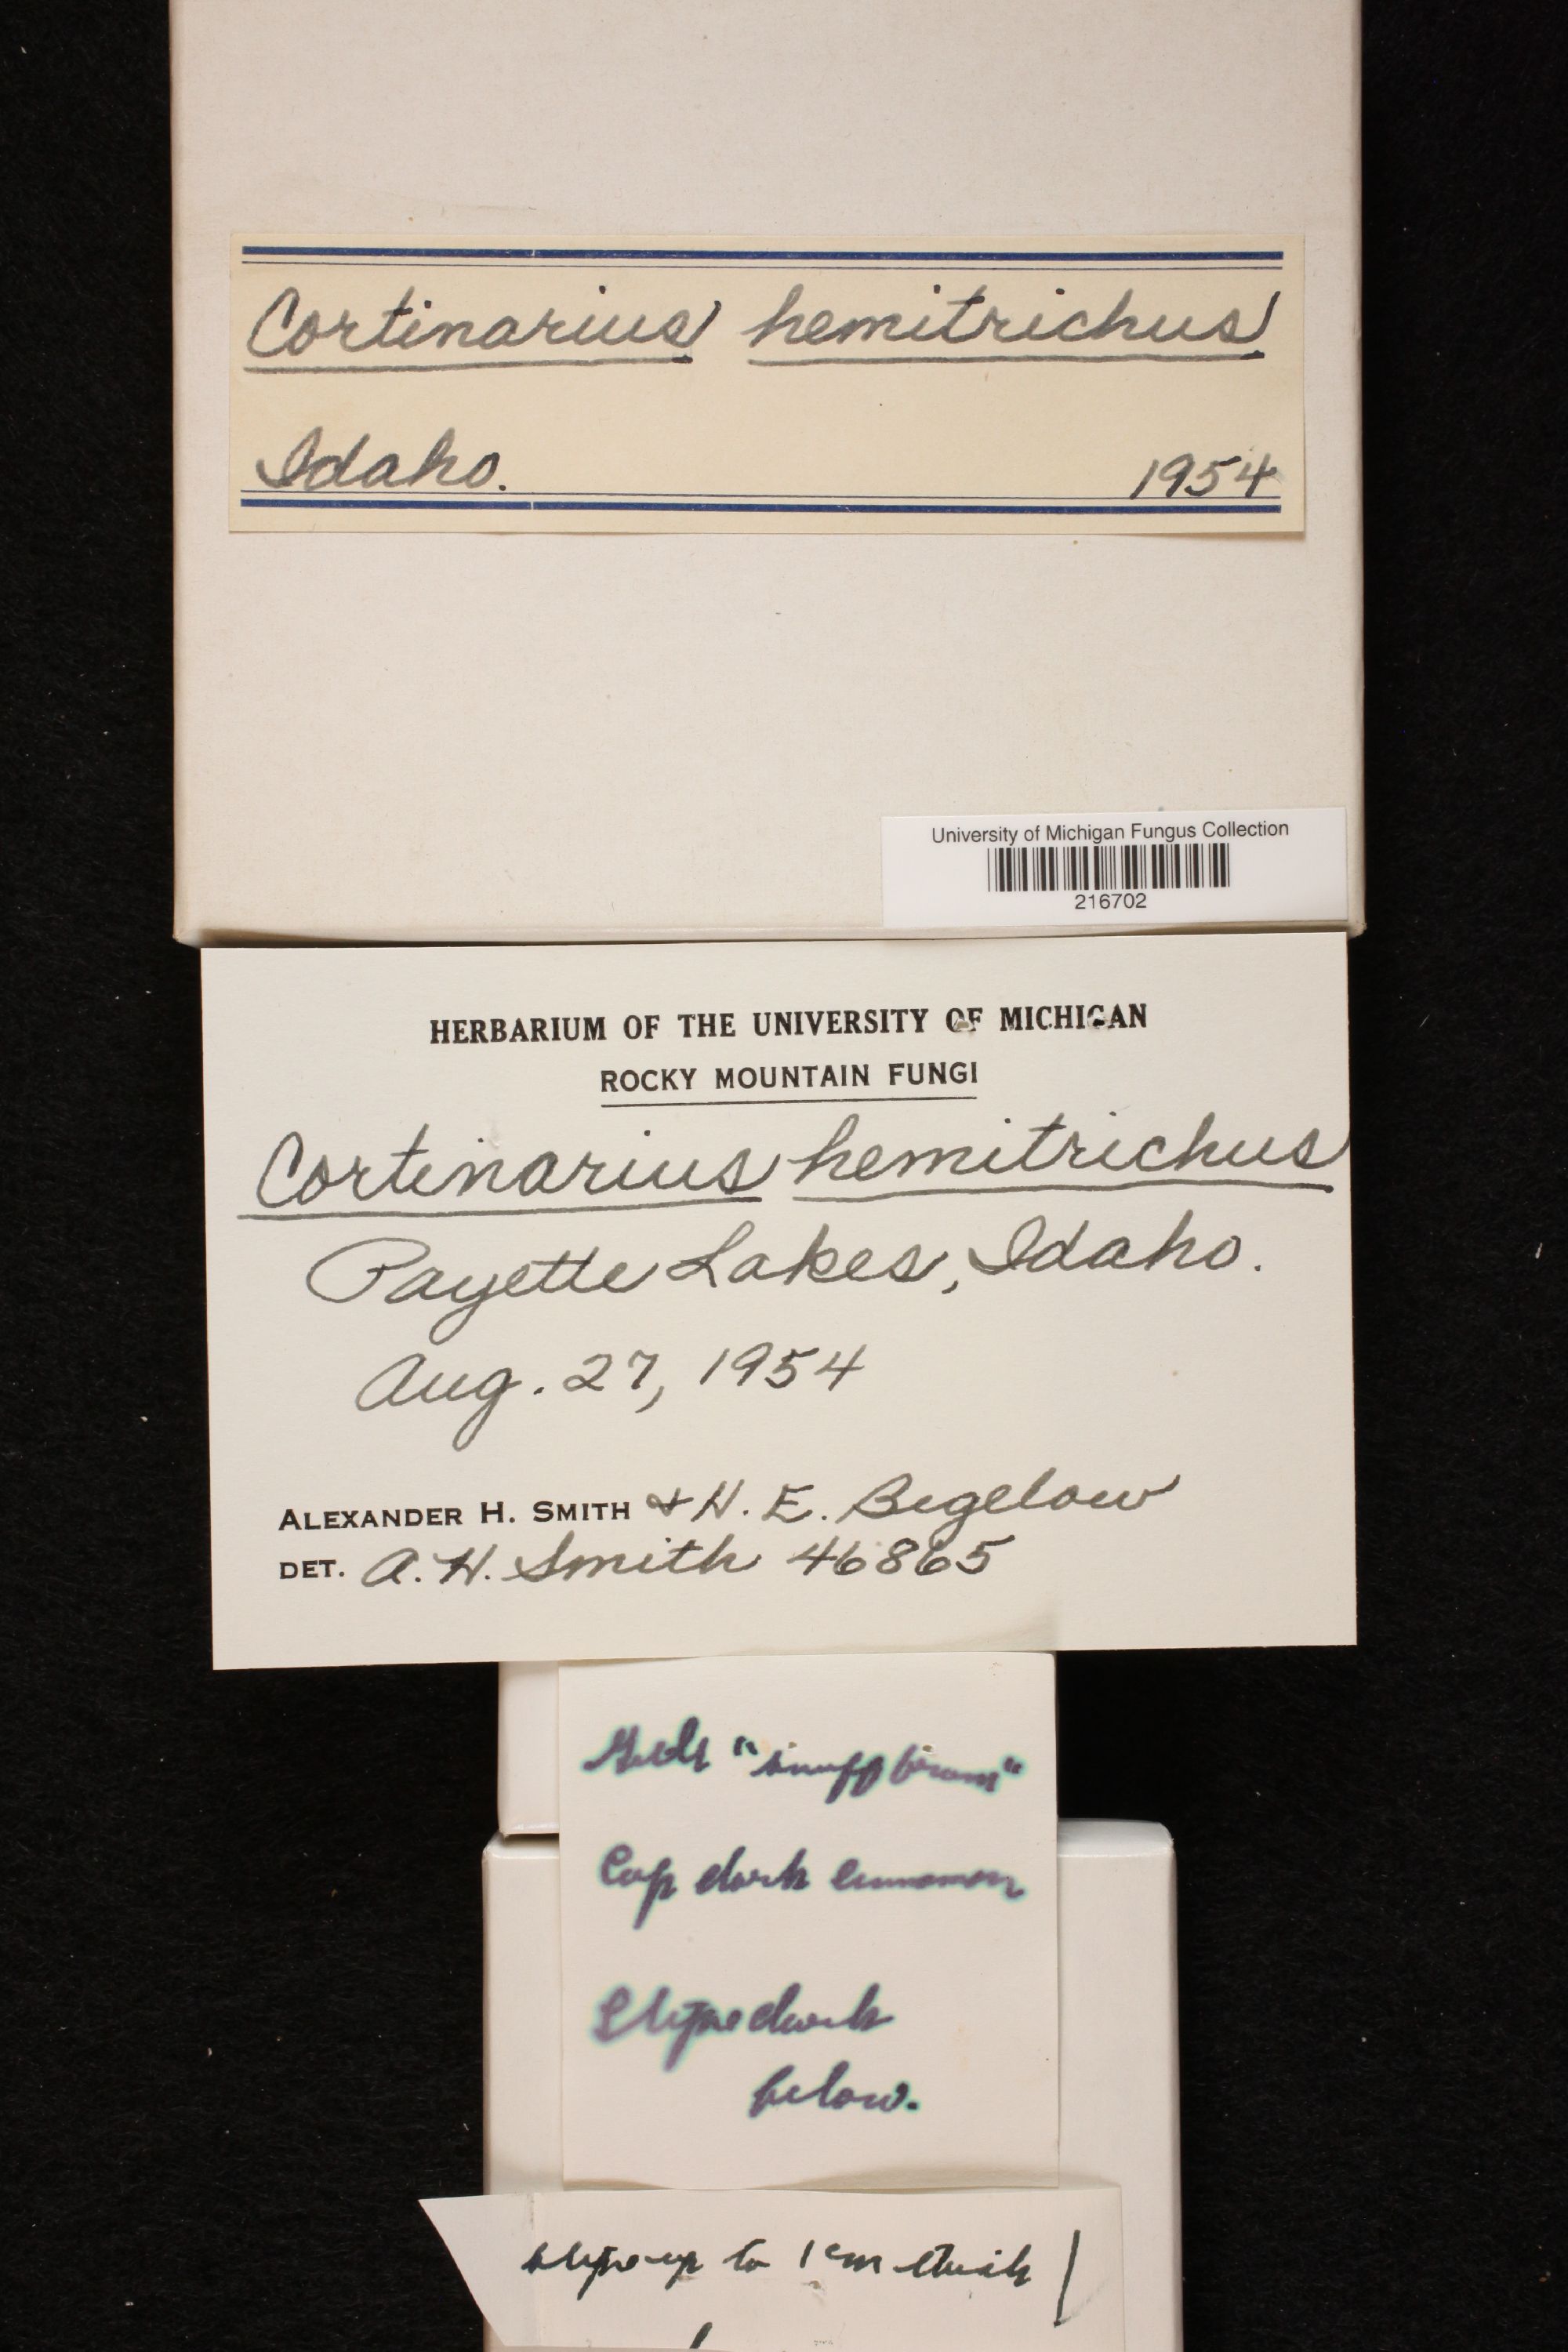 Cortinarius hemitrichus
Idaho. 1954
University of Michigan Fungus Collection
216702
HERBARIUM OF THE UNIVERSITY OF MICHIGAN
ROCKY MOUNTAIN FUNGI
Cortinarius hemitrichus
Payette Lakes, Idaho.
Aug. 27, 1954
ALEXANDER H. SMITH & H. E. Bigelow
DET. A. H. Smith 46865
Gills "snuff brown"
Cap dark cinnamon
Stipe dark
below.
stipe up to 1 cm thick